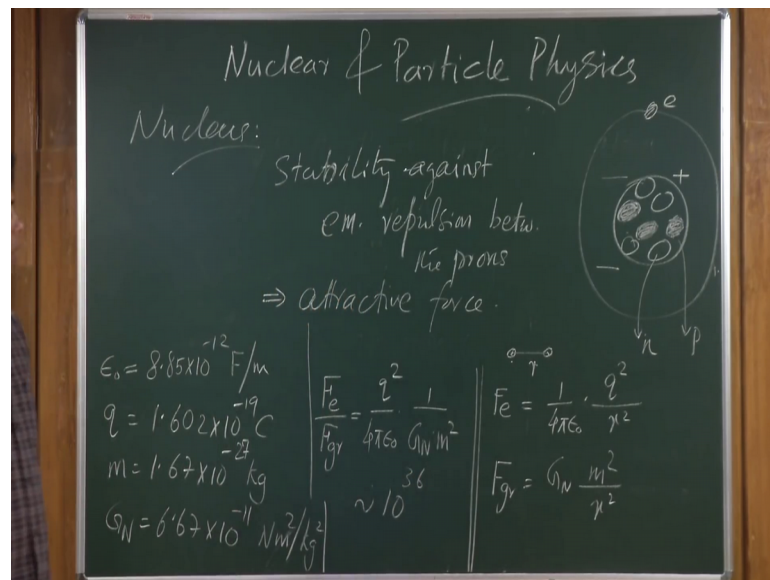 Nuclear & Particle Physics
Nucleus:
Stability against
em. repulsion betw.
the prons
⇒ attractive force.
e
+
−
−
n p
ε₀ = 8.85×10⁻¹² F/m
q = 1.602×10⁻¹⁹ C
m = 1.67×10⁻²⁷ kg
G_N = 6.67×10⁻¹¹ Nm²/kg²
F_e/F_gr = q²/4πε₀ · 1/G_N m²
~ 10³⁶
r
F_e = 1/4πε₀ · q²/r²
F_gr = G_N m²/r²